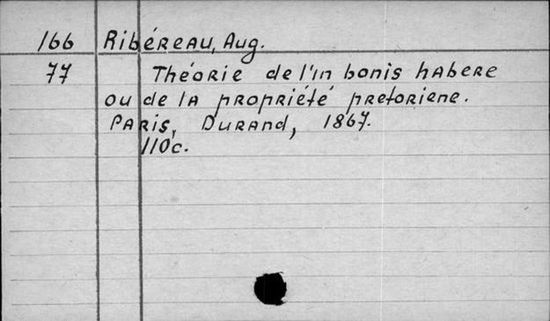 166 Ribéreau, Aug.
77 Théorie de l'in bonis habere
ou de la propriété pretoriene.
Paris, Durand, 1867.
110c.